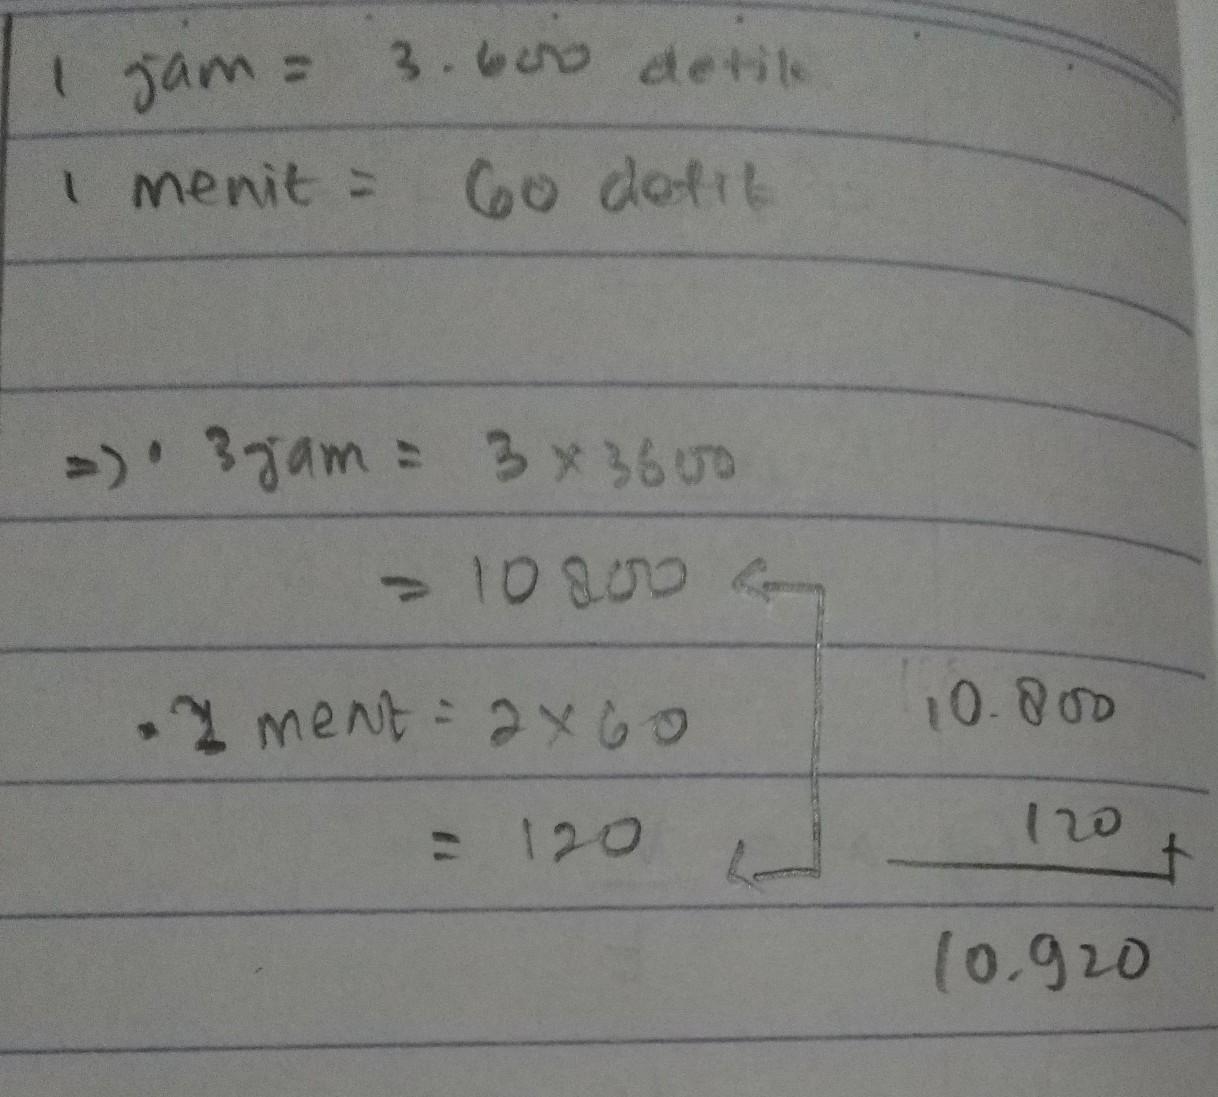 1 jam = 3.600 detik
1 menit = 60 detik
=> • 3 jam = 3 x 3600
= 10800
• 2 menit = 2 x 60
= 120
10.800
120 +
10.920